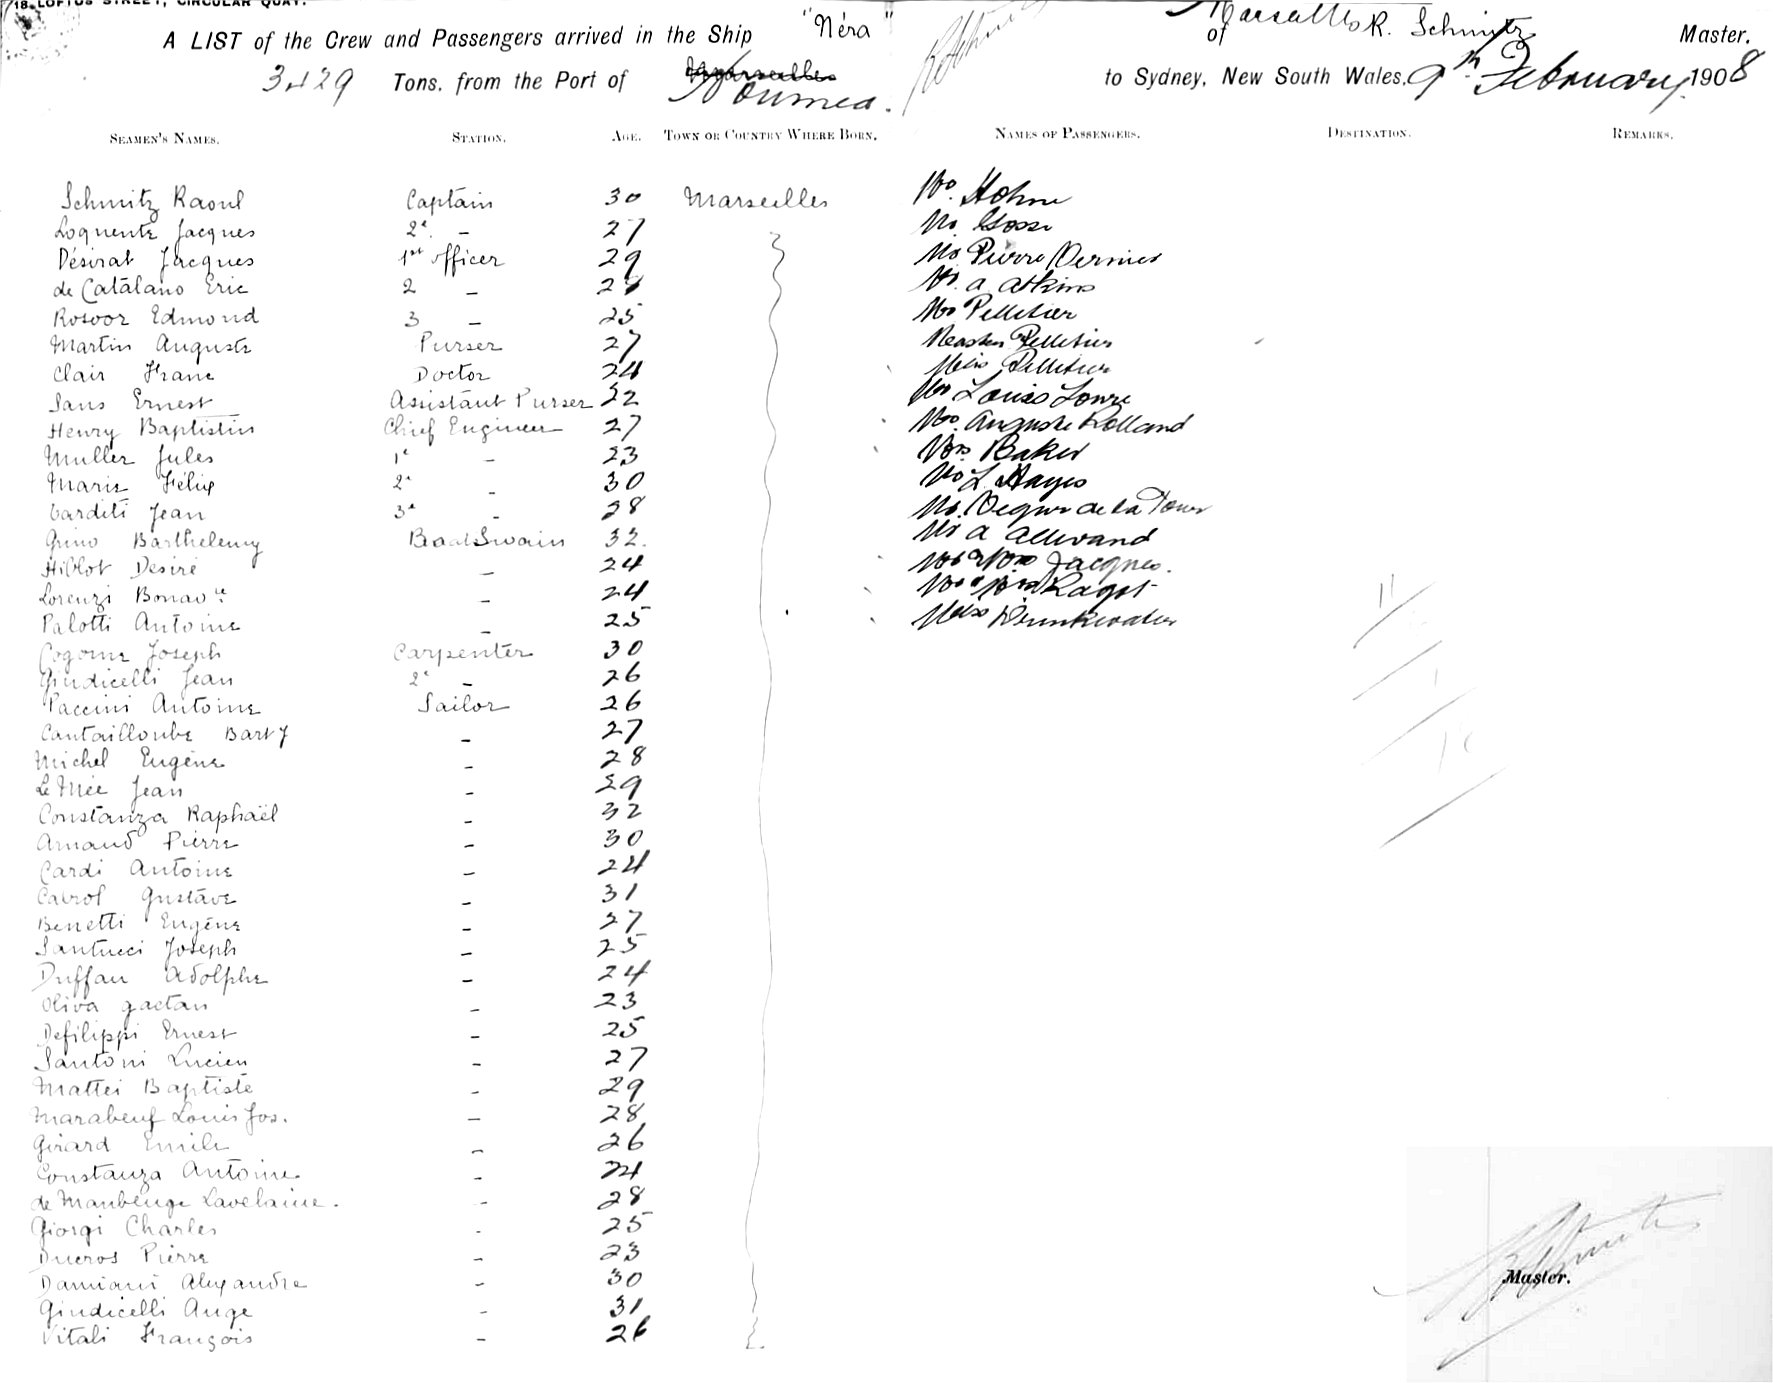 18 LOFTUS STREET, CIRCULAR QUAY.
A LIST of the Crew and Passengers arrived in the Ship "Néra" of Marseilles R. Schmitz Master.
3429 Tons, from the Port of Noumea. to Sydney, New South Wales, 9th February 1908
SEAMEN'S NAMES. STATION. AGE. TOWN OR COUNTRY WHERE BORN. NAMES OF PASSENGERS. DESTINATION. REMARKS.
Schmitz Raoul Captain 30 Marseilles Mr. Hohne
Loquente Jacques 2e - 27 Mr. Gosse
Désirat Jacques 1st officer 29 Mr Pierre Vernier
de Catalano Eric 2 - Mr. A Atkins
Rosoor Edmond 3 - 25 Mrs Pelletier
Martin Auguste Purser 27 Master Pelletier
Clair Franc Doctor 24 Miss Pelletier
Sans Ernest Assistant Purser 22 Mr Louis
Henry Baptistin Chief Engineer 27 Mr. Auguste Rolland
Muller Jules 1e - 23 Mrs. Baker
Marie Félix 2e - 30 Mr L Hayes
Varditi Jean 3e - 28 Mr. de la Tour
Grino Barthelemy BoatSwain 32. Mr A Allevand
Hiblot Desiré - 24 Mr & Mrs Jacques.
Lorenzi Bonavre - 24 Mr & Mrs Ragot
Palotti Antoine - 25 Miss Drinkwater
Cogome Joseph Carpenter 30
Giudicelli Jean 2e - 26
Paccini Antoine Sailor 26
Cantailloube Bart J - 27
Michel Eugène - 28
Le Mée Jean - 29
Constanza Raphaël - 32
Arnaud Pierre - 30
Cardi Antoine - 24
Cabrol Gustave - 31
Benetti Eugène - 27
Santucci Joseph - 25
Duffau Adolphe - 24
Oliva gaetan - 23
Defilippi Ernest - 25
Santoni Lucien - 27
Mattei Baptiste - 29
Marabeuf Louis Jos. - 28
Girard Emile - 26
Constanza Antoine - 24
de Maubeuge Lavelaine. - 28
Giorgi Charles - 25
Ducros Pierre - 23
Damiani Alexandre - 30
Giudicelli Ange - 31
Vitali François - 26
R Schmitz
Master.